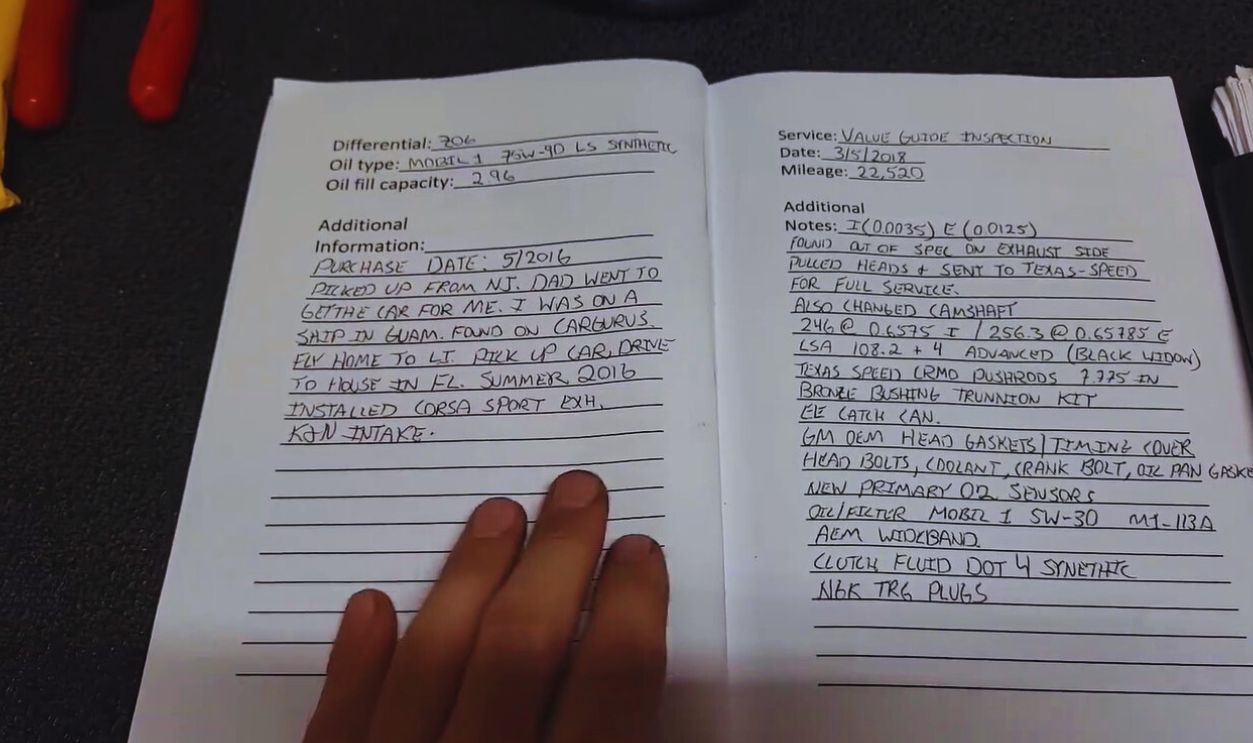 Differential: 706
Oil type: MOBIL 1 75W-90 LS SYNTHETIC
Oil fill capacity: 2.96
Additional
Information:
PURCHASE DATE: 5/2016
PICKED UP FROM NJ. DAD WENT TO
GET THE CAR FOR ME. I WAS ON A
SHIP IN GUAM. FOUND ON CARGURUS.
FLY HOME TO LI. PICK UP CAR, DRIVE
TO HOUSE IN FL. SUMMER 2016
INSTALLED CORSA SPORT EXH.
K&N INTAKE.
Service: VALUE GUIDE INSPECTION
Date: 3/5/2018
Mileage: 22,520
Additional
Notes: I(0.0035) E (0.0125)
FOUND OUT OF SPEC ON EXHAUST SIDE
PULLED HEADS + SENT TO TEXAS-SPEED
FOR FULL SERVICE.
ALSO CHANGED CAMSHAFT
246 @ 0.6575 I / 256.3 @ 0.65785 E
LSA 108.2 + 4 ADVANCED (BLACK WIDOW)
TEXAS SPEED CRMO PUSHRODS 7.775 IN
BRONZE BUSHING TRUNNION KIT
EE CATCH CAN.
GM OEM HEAD GASKETS/TIMING COVER
HEAD BOLTS, COOLANT, CRANK BOLT, OIL PAN GASKE
NEW PRIMARY O2 SENSORS
OIL/FILTER MOBIL 1 5W-30 M1-113A
AEM WIDEBAND.
CLUTCH FLUID DOT 4 SYNETHIC
NGK TR6 PLUGS